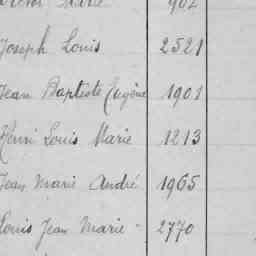 Marie 902
Joseph Louis 2521
Jean Baptiste Eugène 1901
Henri Louis Marie 1213
Jean Marie André 1965
Louis Jean Marie - 2770